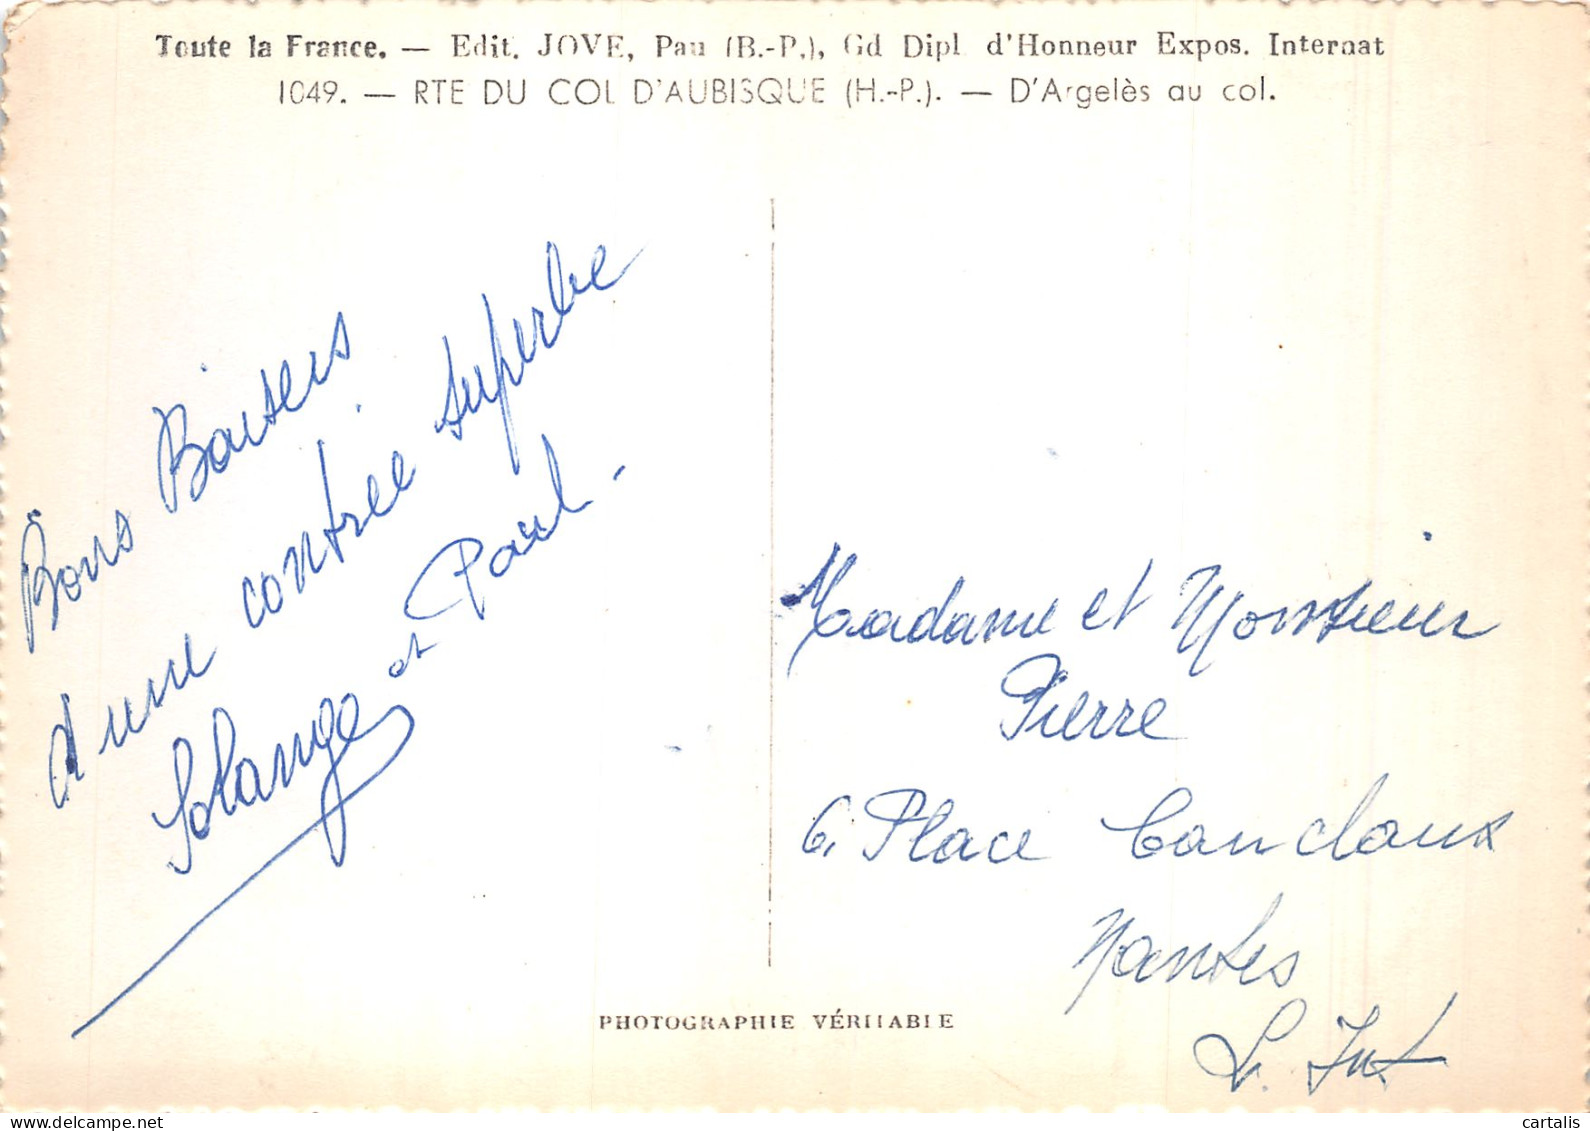 Toute la France. — Edit. JOVE, Pau (B.-P.), Gd Dipl d'Honneur Expos. Internat
1049. — RTE DU COL D'AUBISQUE (H.-P.). — D'Argelès au col.
Bons Baisers
d'une contrée superbe
Solange et Paul.
Madame et Monsieur
Pierre
6, Place Canclaux
Nantes
L. Inf
PHOTOGRAPHIE VÉRITABLE
cartalis